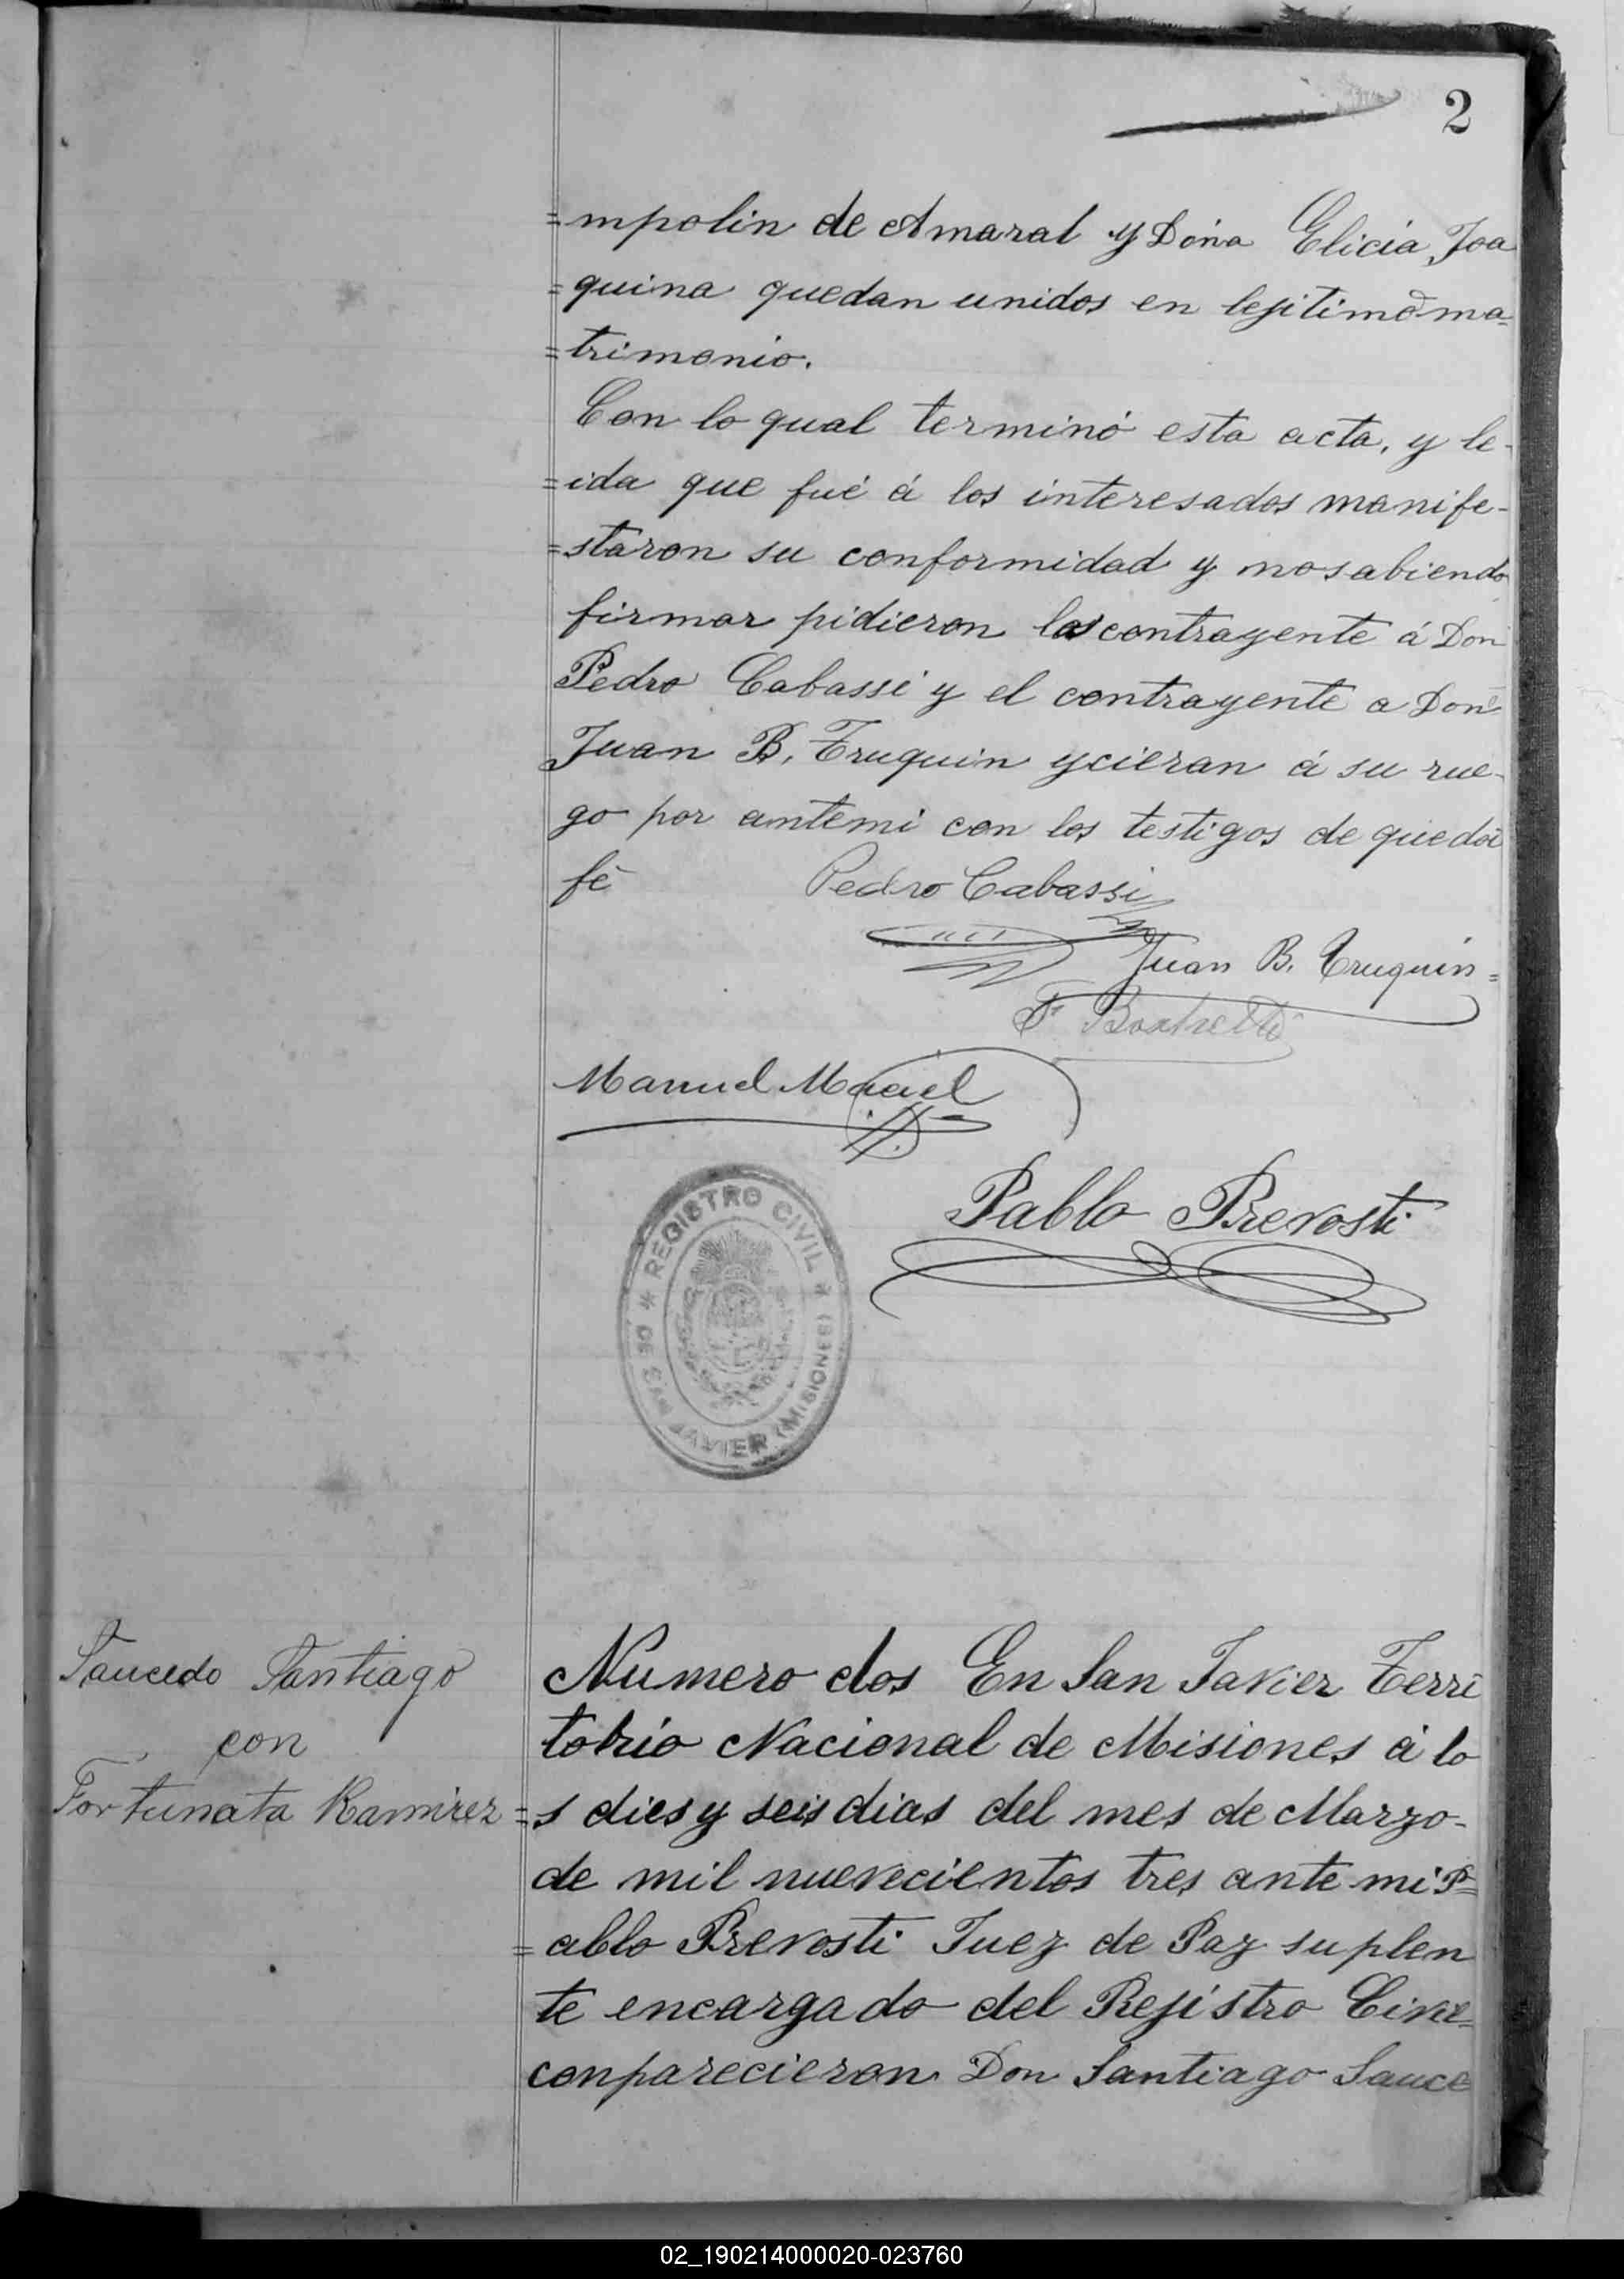 2
=mpolin de Amaral y Doña Elicia Joa
=quina quedan unidos en lejitimo ma=
=trimonio.
Con lo qual terminó esta acta, y le-
=ida que fué á los interesados manife-
=staron su conformidad y no sabiendo
firmar pidieron la contrayente á Don
Pedro Cabassi y el contrayente a Don
Juan B. Truquin ycieran á su rue-
go por antemi con los testigos de que doi
fé
Pedro Cabassi
Juan B. Truquin=
Manuel Maciel
Pablo Prevosti
* REGISTRO CIVIL *
DE SAN JAVIER (MISIONES)
Saucedo Santiago
con
Fortunata Ramirez
Numero dos En San Javier Terri
torio Nacional de Misiones á lo
=s dies y seis dias del mes de Marzo-
de mil nuevecientos tres ante mi P=
=ablo Prevosti Juez de Paz suplen
te encargado del Rejistro Civil=
conparecieron Don Santiago Sauce
02_190214000020-023760